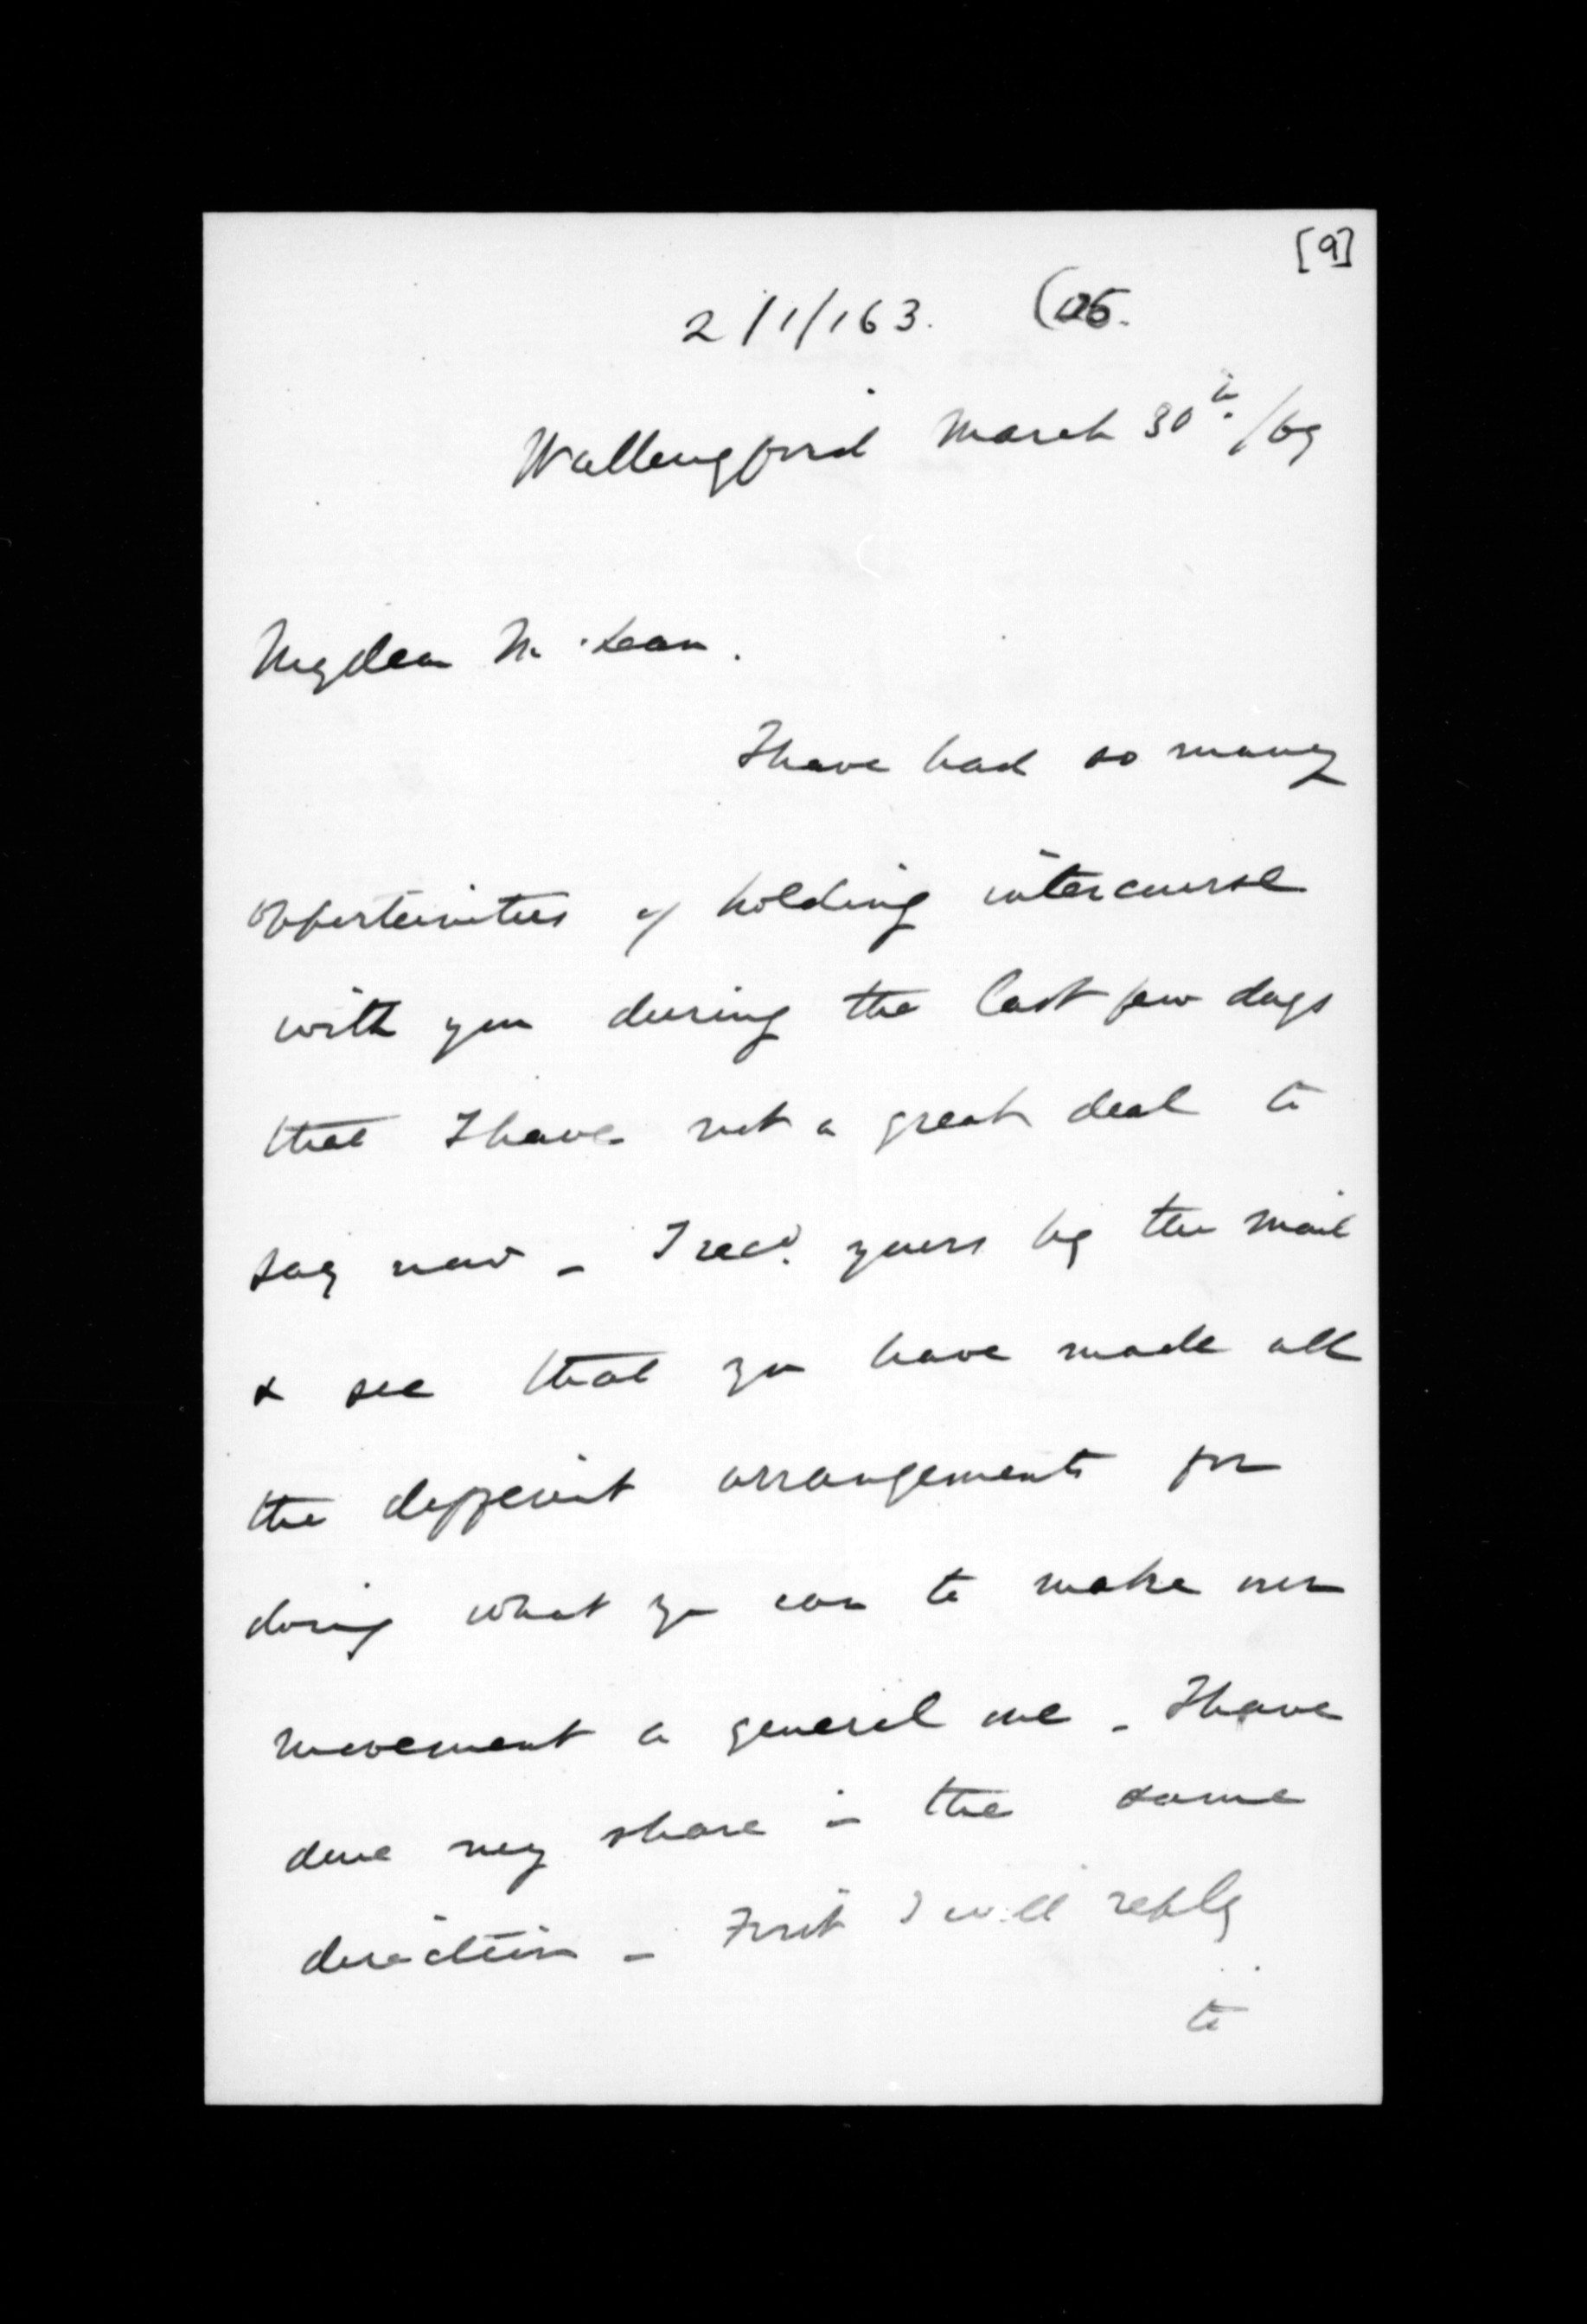 [9]
2/1/163. (05.
Wallingford March 30th./69
My dear McLean.
I have had so many
opportunities of holding intercourse
with you during the last few days
that I have not a great deal to
say now _ I recd. yours by the mail
& see that you have made all
the different arrangements for
doing what you can to make our
movement a general one _ I have
done my share in the same
direction _ First I will reply
to